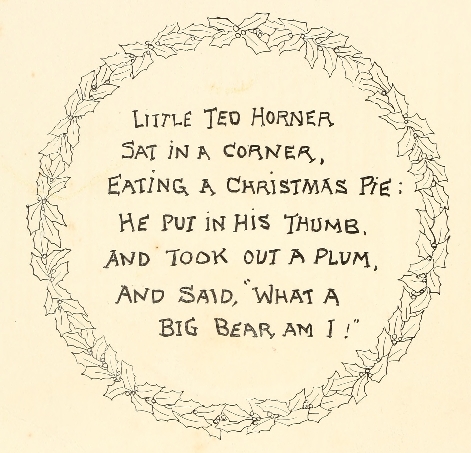 LITTLE TED HORNER
SAT IN A CORNER,
EATING A CHRISTMAS PIE:
HE PUT IN HIS THUMB,
AND TOOK OUT A PLUM,
AND SAID, "WHAT A
BIG BEAR AM I!"